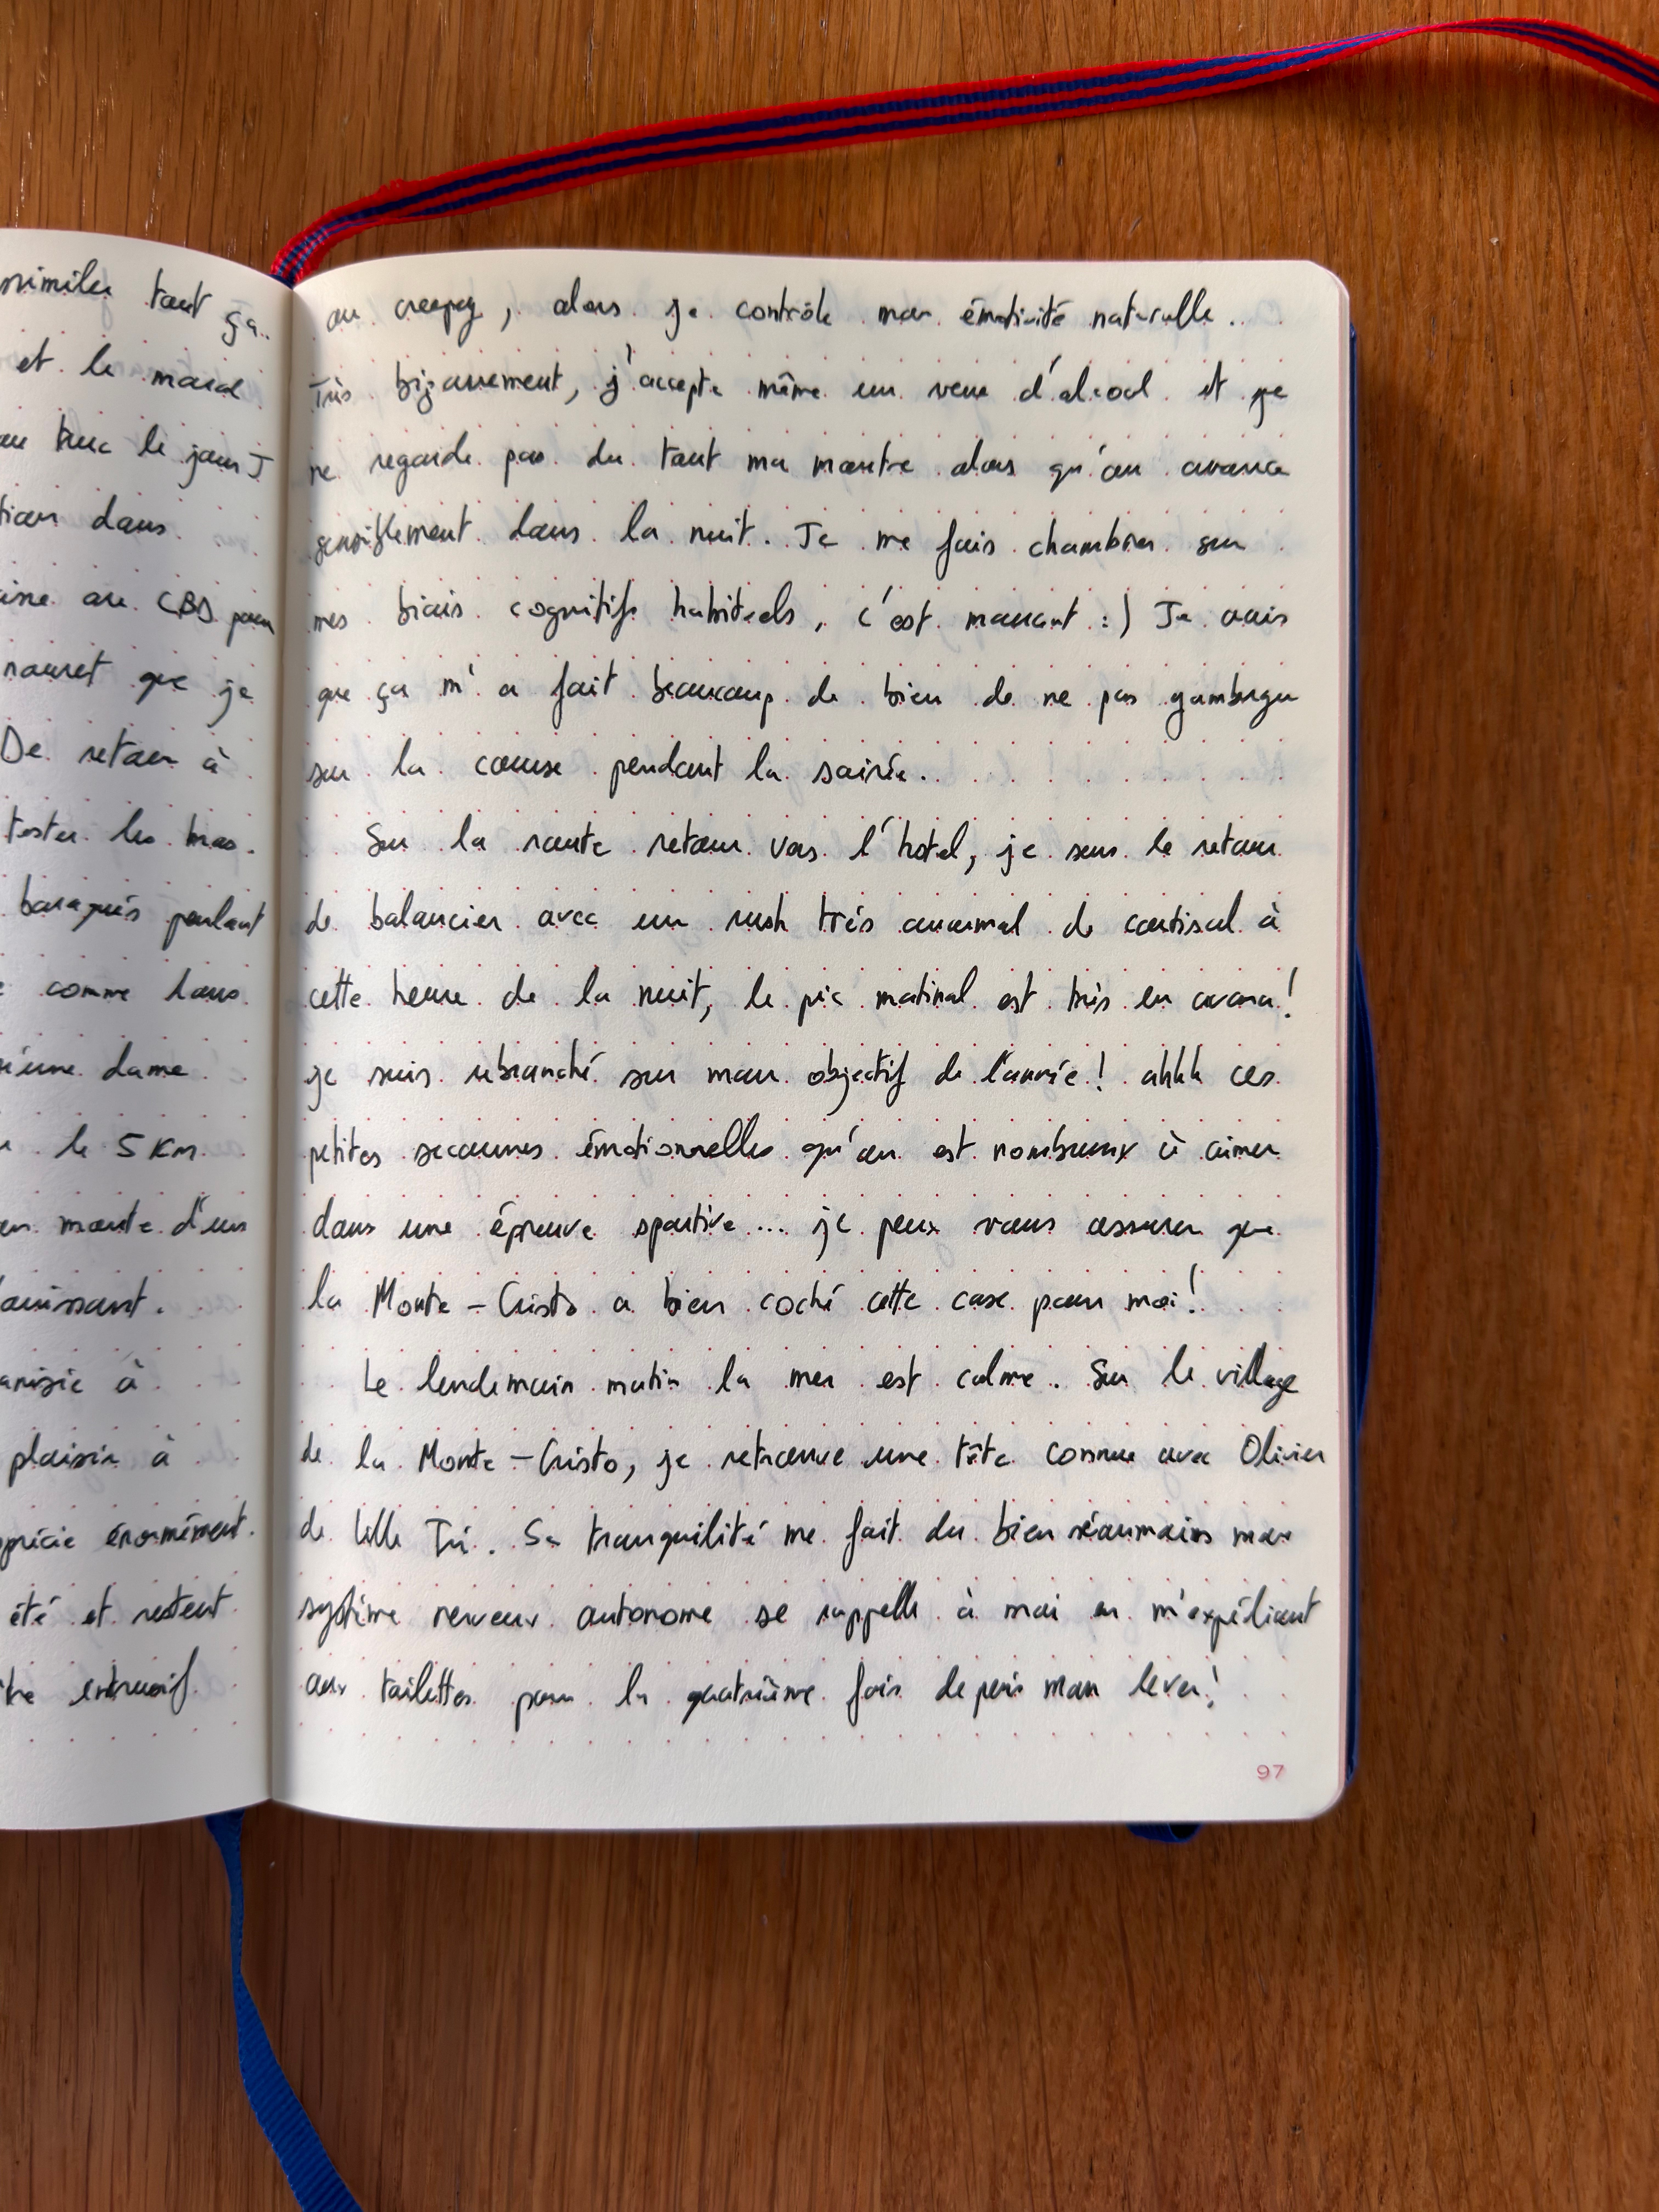 ssimiler tout ça.
et le mard
truc le jour J
dans
au CBD pour
que je
De retour à
tester les bras.
baraqués pendant
comme dans
une dame
le 5 Km
monte d'un
à
plaisir à
pprécie énormément.
été et restent
intrusif
ou creepy, alors je contrôle mon émotivité naturelle.
Très bizarrement, j'accepte même un verre d'alcool et je
ne regarde pas du tout ma montre alors qu'on avance
sensiblement dans la nuit. Je me fais chambrer sur
mes biais cognitifs habituels, c'est marrant :) Je crois
que ça m'a fait beaucoup de bien de ne pas gamberger
sur la course pendant la soirée.
Sur la route retour vers l'hotel, je sens le retour
de balancier avec un rush très anormal de cortisol à
cette heure de la nuit, le pic matinal est très en avance!
je suis rebranché sur mon objectif de l'année! ahhh ces
petites secousses émotionnelles qu'on est nombreux à aimer
dans une épreuve sportive... je peux vous assurer que
la Monte-Cristo a bien coché cette case pour moi!
Le lendemain matin la mer est calme. Sur le village
de la Monte-Cristo, je retrouve une tête connue avec Olivier
de Lille Tri. Sa tranquilité me fait du bien néanmoins mon
système nerveux autonome se rappelle à moi en m'expédiant
aux toilettes pour la quatrième fois depuis mon lever!
97